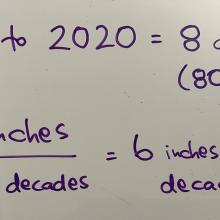 to 2020 = 8
(80
nches
decades
= 6 inches
decad